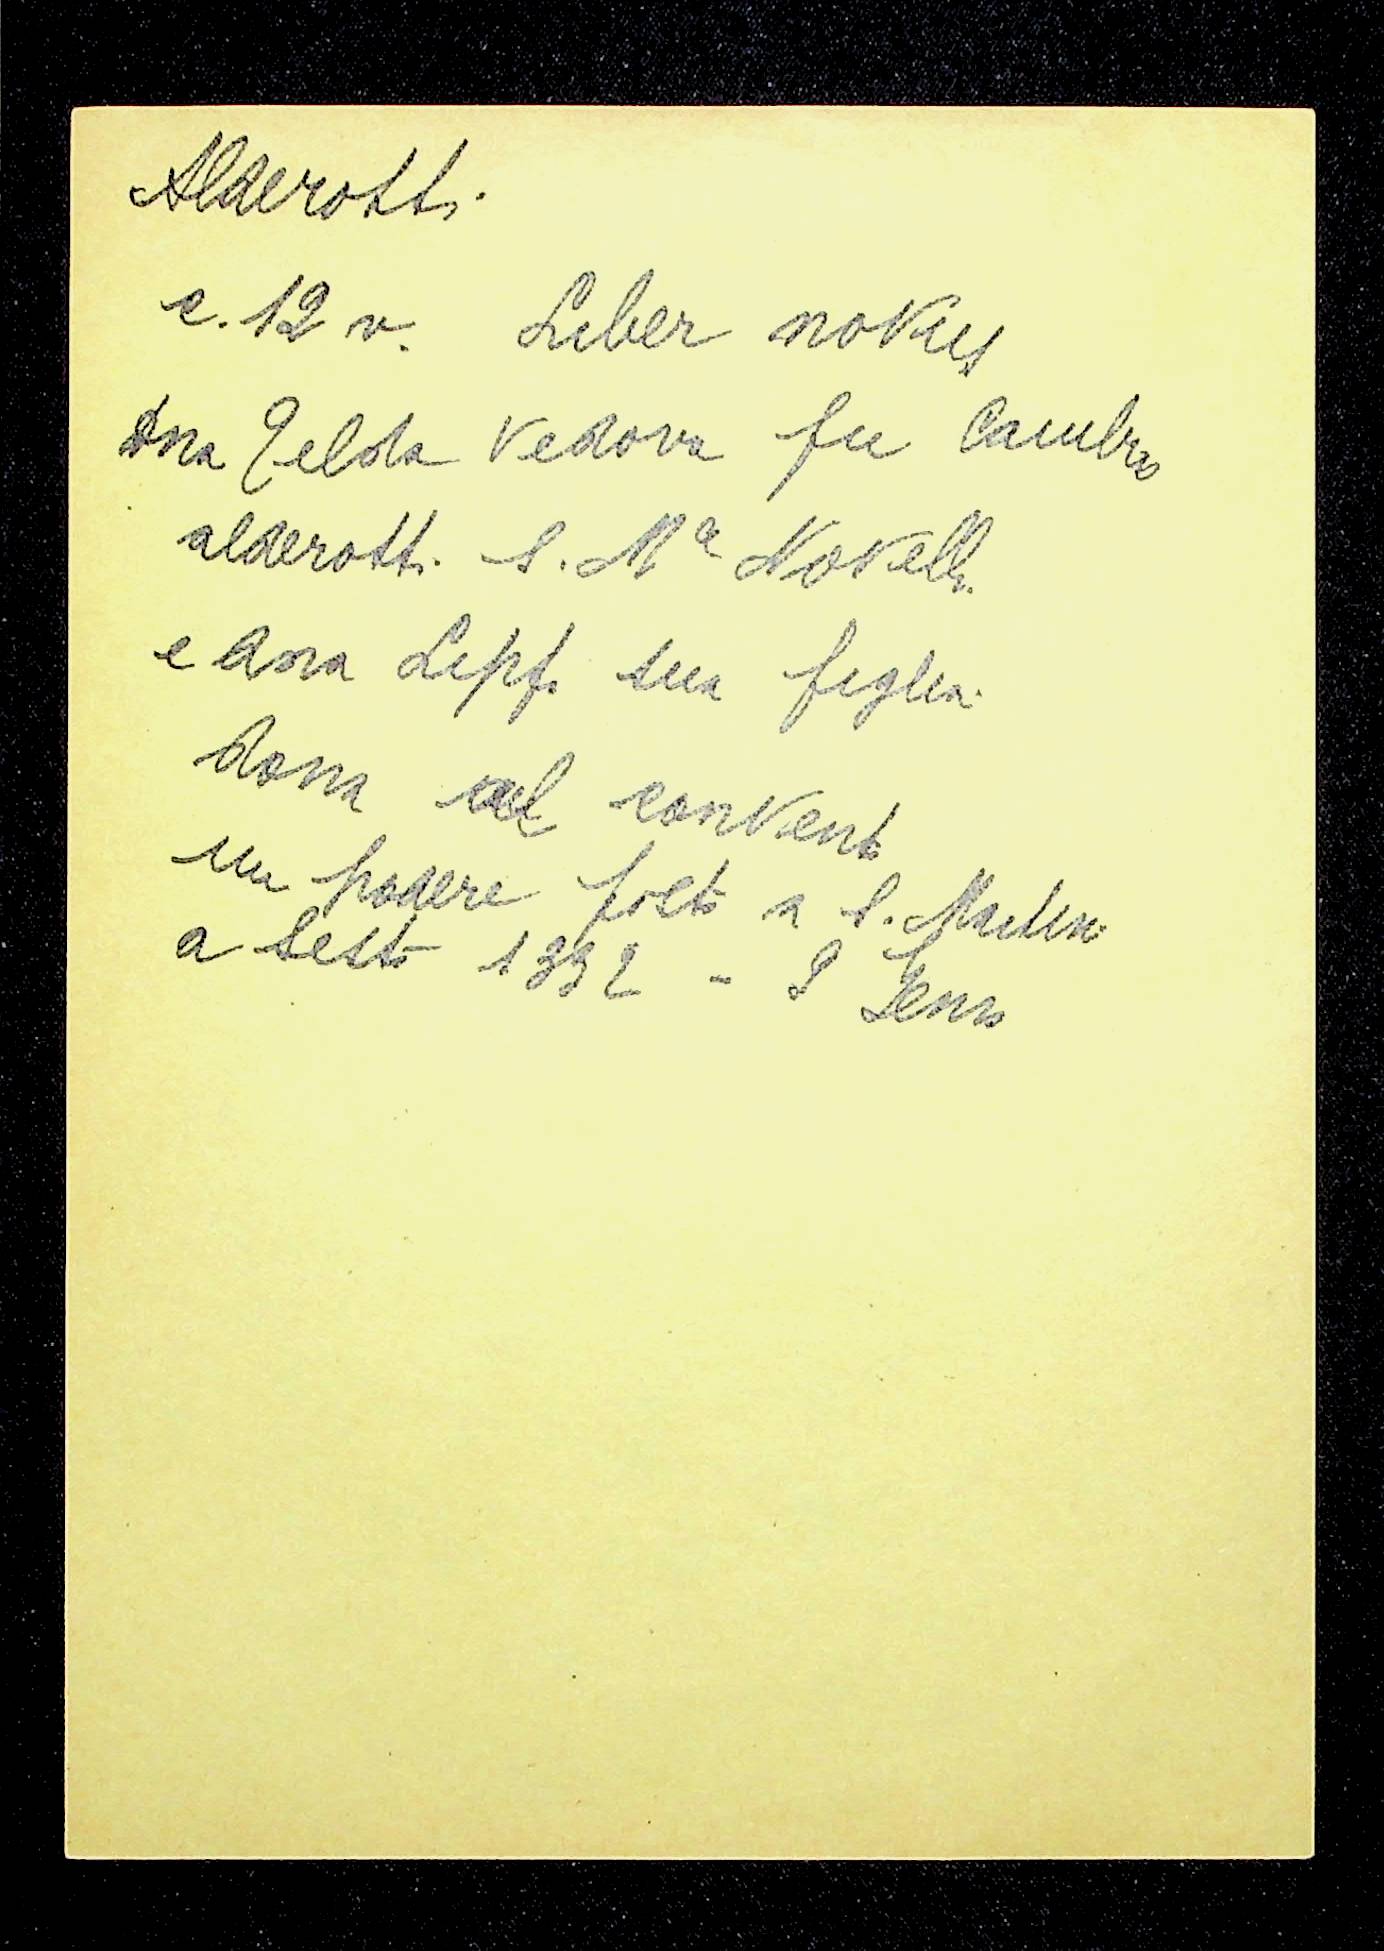 Alderotti
c. 12 v. Liber novus
Dna Gelda vedova fu Cambio
alderotti S. Mª Novella
e dna sua figlia
dona al convento
un podere posto a S. Martino
a Sesto 1332 - 9 Genn